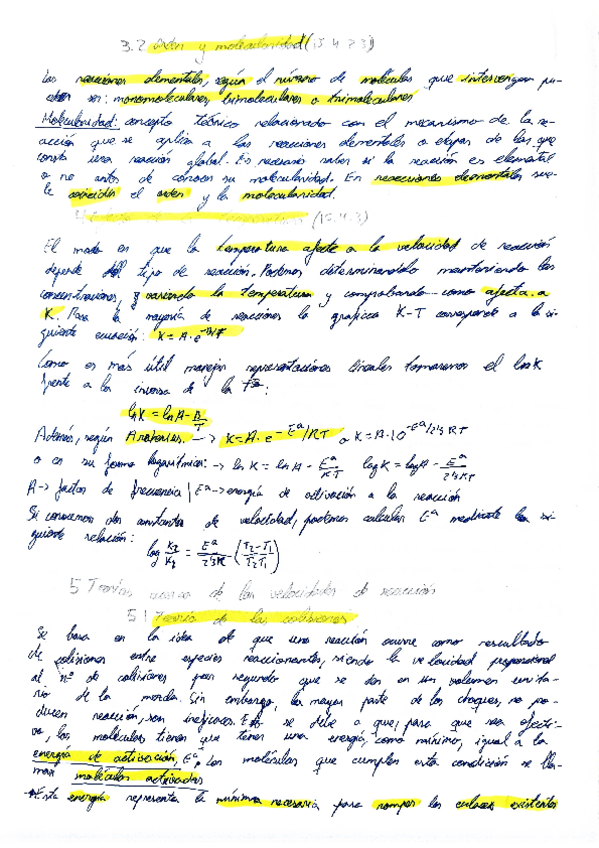 3.2 Orden y molecularidad (15.4.2 y 3)
Las reacciones elementales, según el número de moléculas que intervengan pu-
eden ser: monomoleculares, bimoleculares o trimoleculares
Molecularidad: concepto teórico relacionado con el mecanismo de la re-
acción que se aplica a las reacciones elementales o etapas de las que
consta una reacción global. Es necesario saber si la reacción es elemental
o no antes de conocer su molecularidad. En reacciones elementales sue-
le coincidir el orden y la molecularidad.
(15.4.3)
El modo en que la temperatura afecte a la velocidad de reacción
depende del tipo de reacción. Podemos determinarlo manteniendo las
concentraciones, y variando la temperatura y comprobando como afecta a
K. Para la mayoría de reacciones la gráfica K-T corresponde a la si-
guiente ecuación: K = A·e^-B/T
Como es más útil manejar representaciones lineales tomaremos el ln K
frente a la inversa de la Tª:
ln K = ln A - B/T
Además, según Arrhenius. -> K = A·e^-Ea/RT o K = A·10^-Ea/2'3RT
o en su forma logarítmica: -> ln K = ln A - Ea/RT log K = log A - Ea/2'3RT
A -> factor de frecuencia | Ea -> energía de activación a la reacción
Si conocemos dos constantes de velocidad, podemos calcular Ea mediante la si-
guiente relación: log K2/K1 = Ea/2'3R (T2-T1/T2T1)
5 Teorías acerca de las velocidades de reacción
5.1 Teoría de las colisiones
Se basa en la idea de que una reacción ocurre como resultado
de colisiones entre especies reaccionantes, siendo la velocidad proporcional
al nº de colisiones por segundo que se dan en un volumen unita-
rio de la mezcla. Sin embargo, la mayor parte de los choques, no pro-
ducen reacción, son ineficaces. Esto se debe a que, para que sea efecti-
vo, las moléculas tienen que tener una energía, como mínimo, igual a la
energía de activación, Ea, las moléculas que cumplen esta condición se lla-
man moléculas activadas
Esta energía representa la mínima necesaria para romper los enlaces existentes